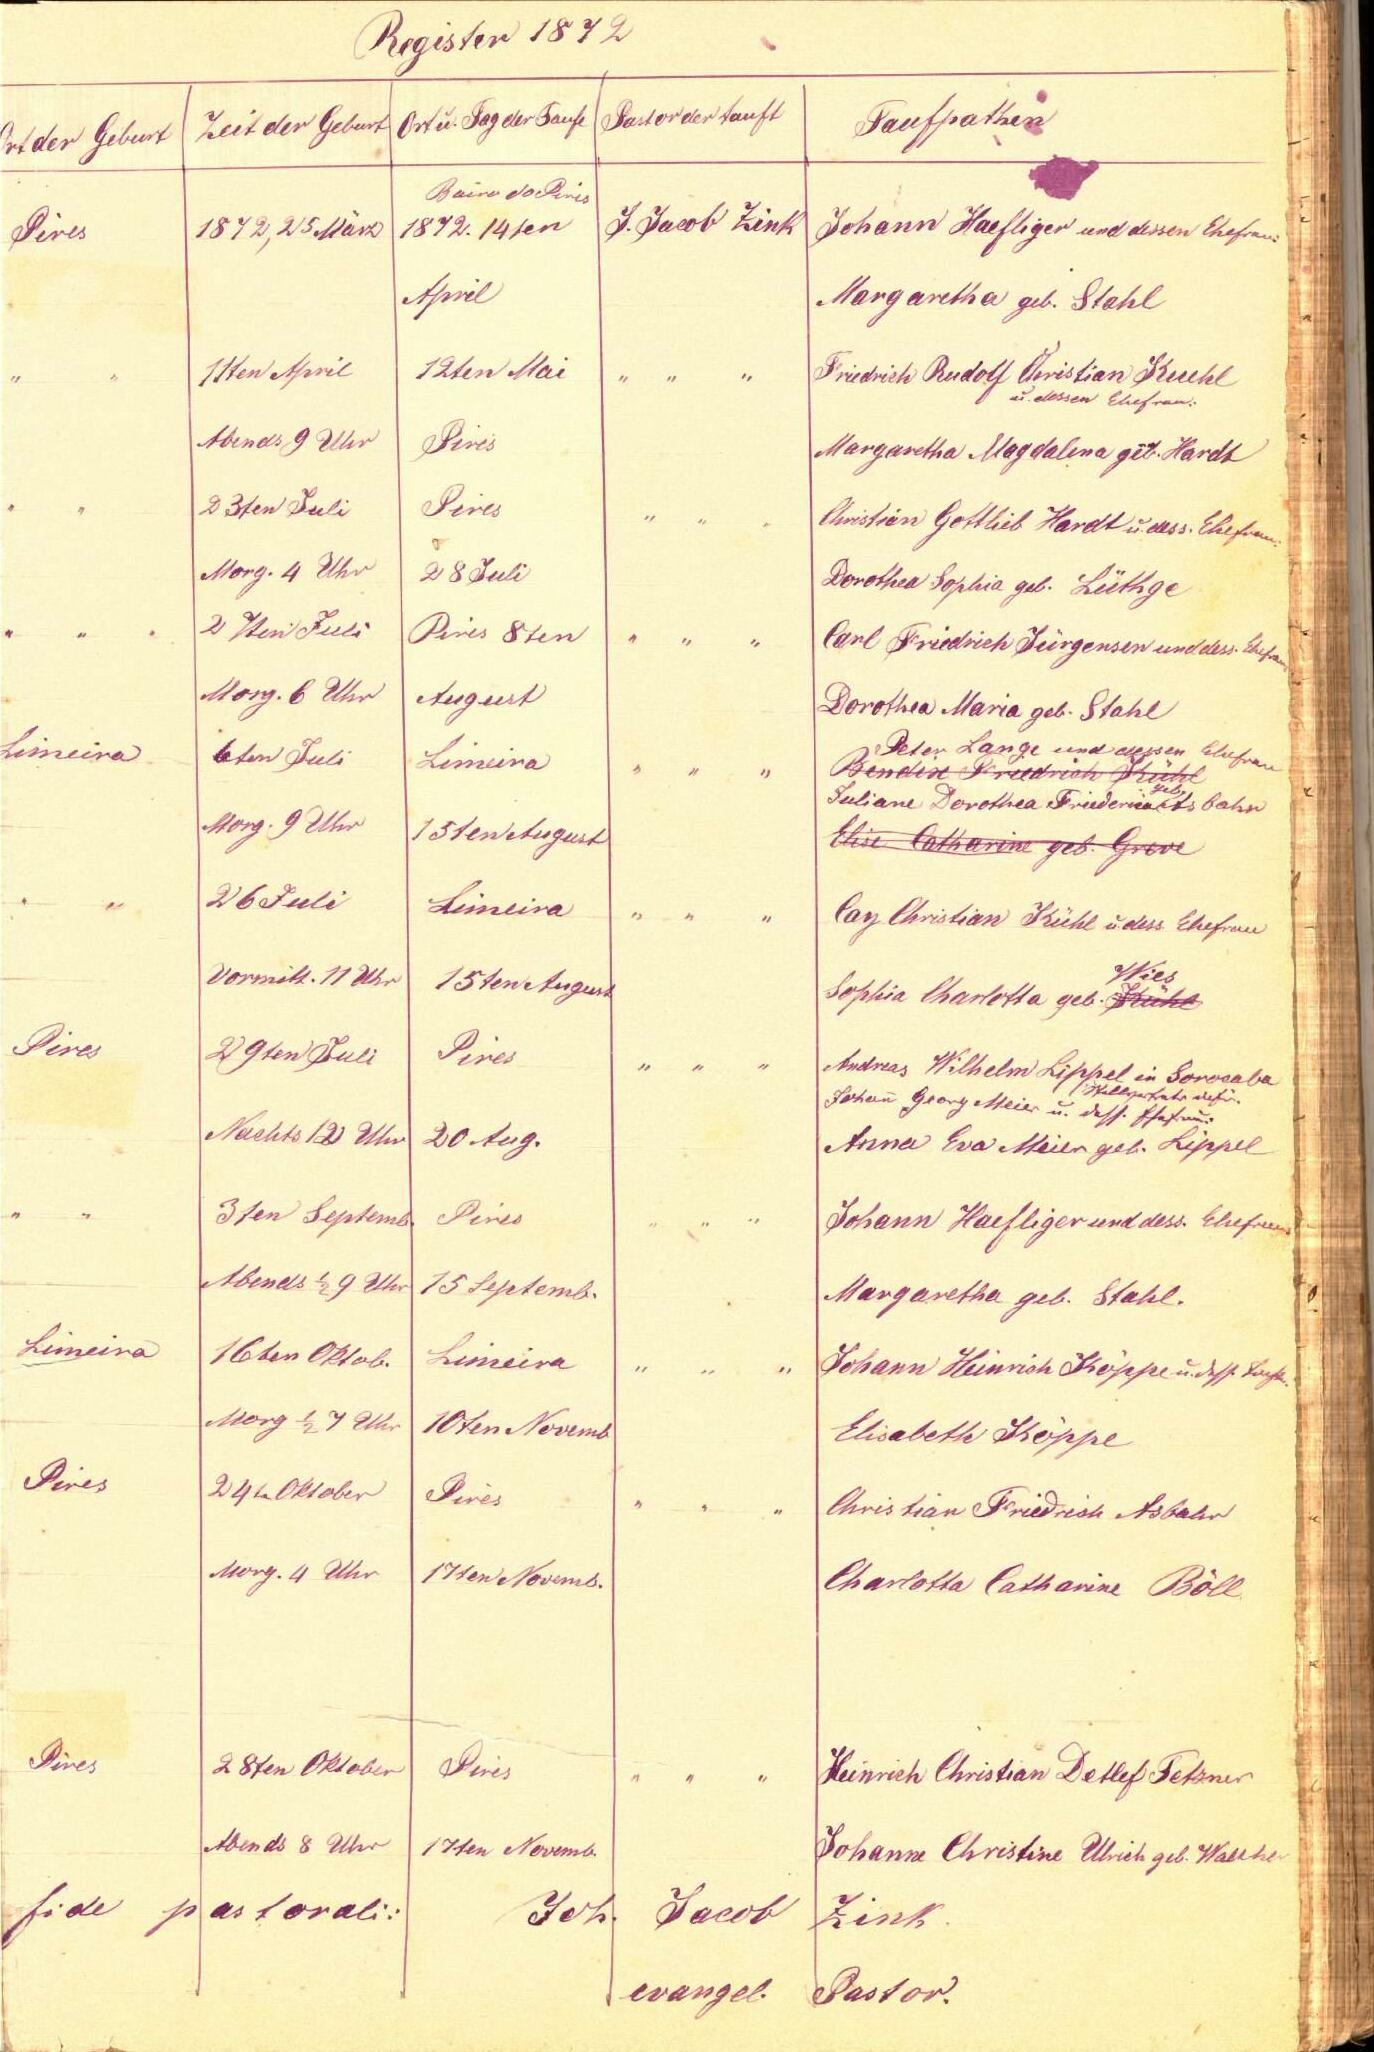 Register 1872
Ort der Geburt Zeit der Geburt Ort u. Tag der Taufe Pastor der tauft Taufpathen
Bairo do Pires
Pires 1872, 25 März 1872. 14ten J. Jacob Zink Johann Haefliger und dessen Ehefrau:
April Margaretha geb. Stahl
" " 11ten April 12ten Mai " " " Friedrich Rudolf Christian Kuehl
u. dessen Ehefrau:
Abends 9 Uhr Pires Margaretha Magdalena geb. Hardt
" " 23ten Juli Pires " " " Christian Gottlieb Hardt u. dess. Ehefrau:
Morg. 4 Uhr 28 Juli Dorothea Sophia geb. Lüthge
" " " 27ten Juli Pires 8ten " " " Carl Friedrich Jürgensen und dess. Ehefrau
Morg. 6 Uhr August Dorothea Maria geb. Stahl
Peter Lange und dessen Ehefrau
Limeira 6ten Juli Limeira " " " Bendix Friedrich Kühl
Juliane Dorothea Friederica geb. Asbahr
Morg. 9 Uhr 15ten August Elise Catharine geb. Greve
" " 26 Juli Limeira " " " Cay Christian Kühl u. dess Ehefrau
Wies
Vormitt. 11 Uhr 15ten August Sophia Charlotta geb. Kühl
Pires 29ten Juli Pires " " " Andreas Wilhelm Lippel in Sorocaba
Johann Georg Meier u. dess. Ehefrau:
Nachts 12 Uhr 20 Aug. Anna Eva Meier geb. Lippel
" " 3ten Septemb. Pires " " " Johann Haefliger und dess. Ehefrau
Abends ½ 9 Uhr 15 Septemb. Margaretha geb. Stahl.
Limeira 16ten Oktob. Limeira " " " Johann Heinrich Köppe u. dess.
Morg ½ 7 Uhr 10ten Novemb Elisabeth Köppe
Pires 24tn Oktober Pires " " " Christian Friedrich Asbahr
Morg. 4 Uhr 17ten Novemb. Charlotta Catharine Böll
Pires 28ten Oktober Pires " " " Heinrich Christian Detlef Fetzner
Abends 8 Uhr 17ten Novemb. Johanne Christine Ulrich geb. Walther
fide pastorali: Joh. Jacob Zink.
evangel. Pastor.